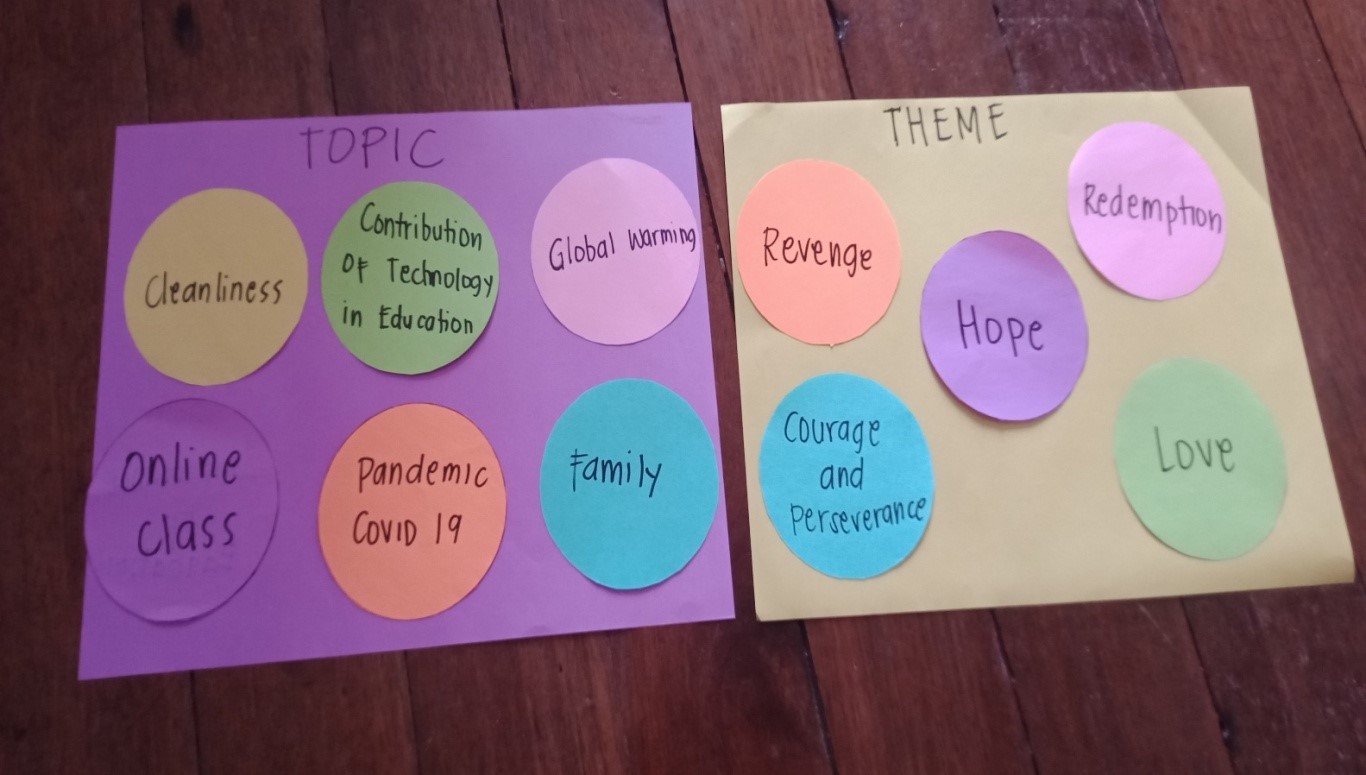 TOPIC
Cleanliness
Contribution
Of Technology
in Education
Global Warming
Online
class
Pandemic
COVID 19
Family
THEME
Revenge
Redemption
Hope
Courage
and
Perseverance
Love